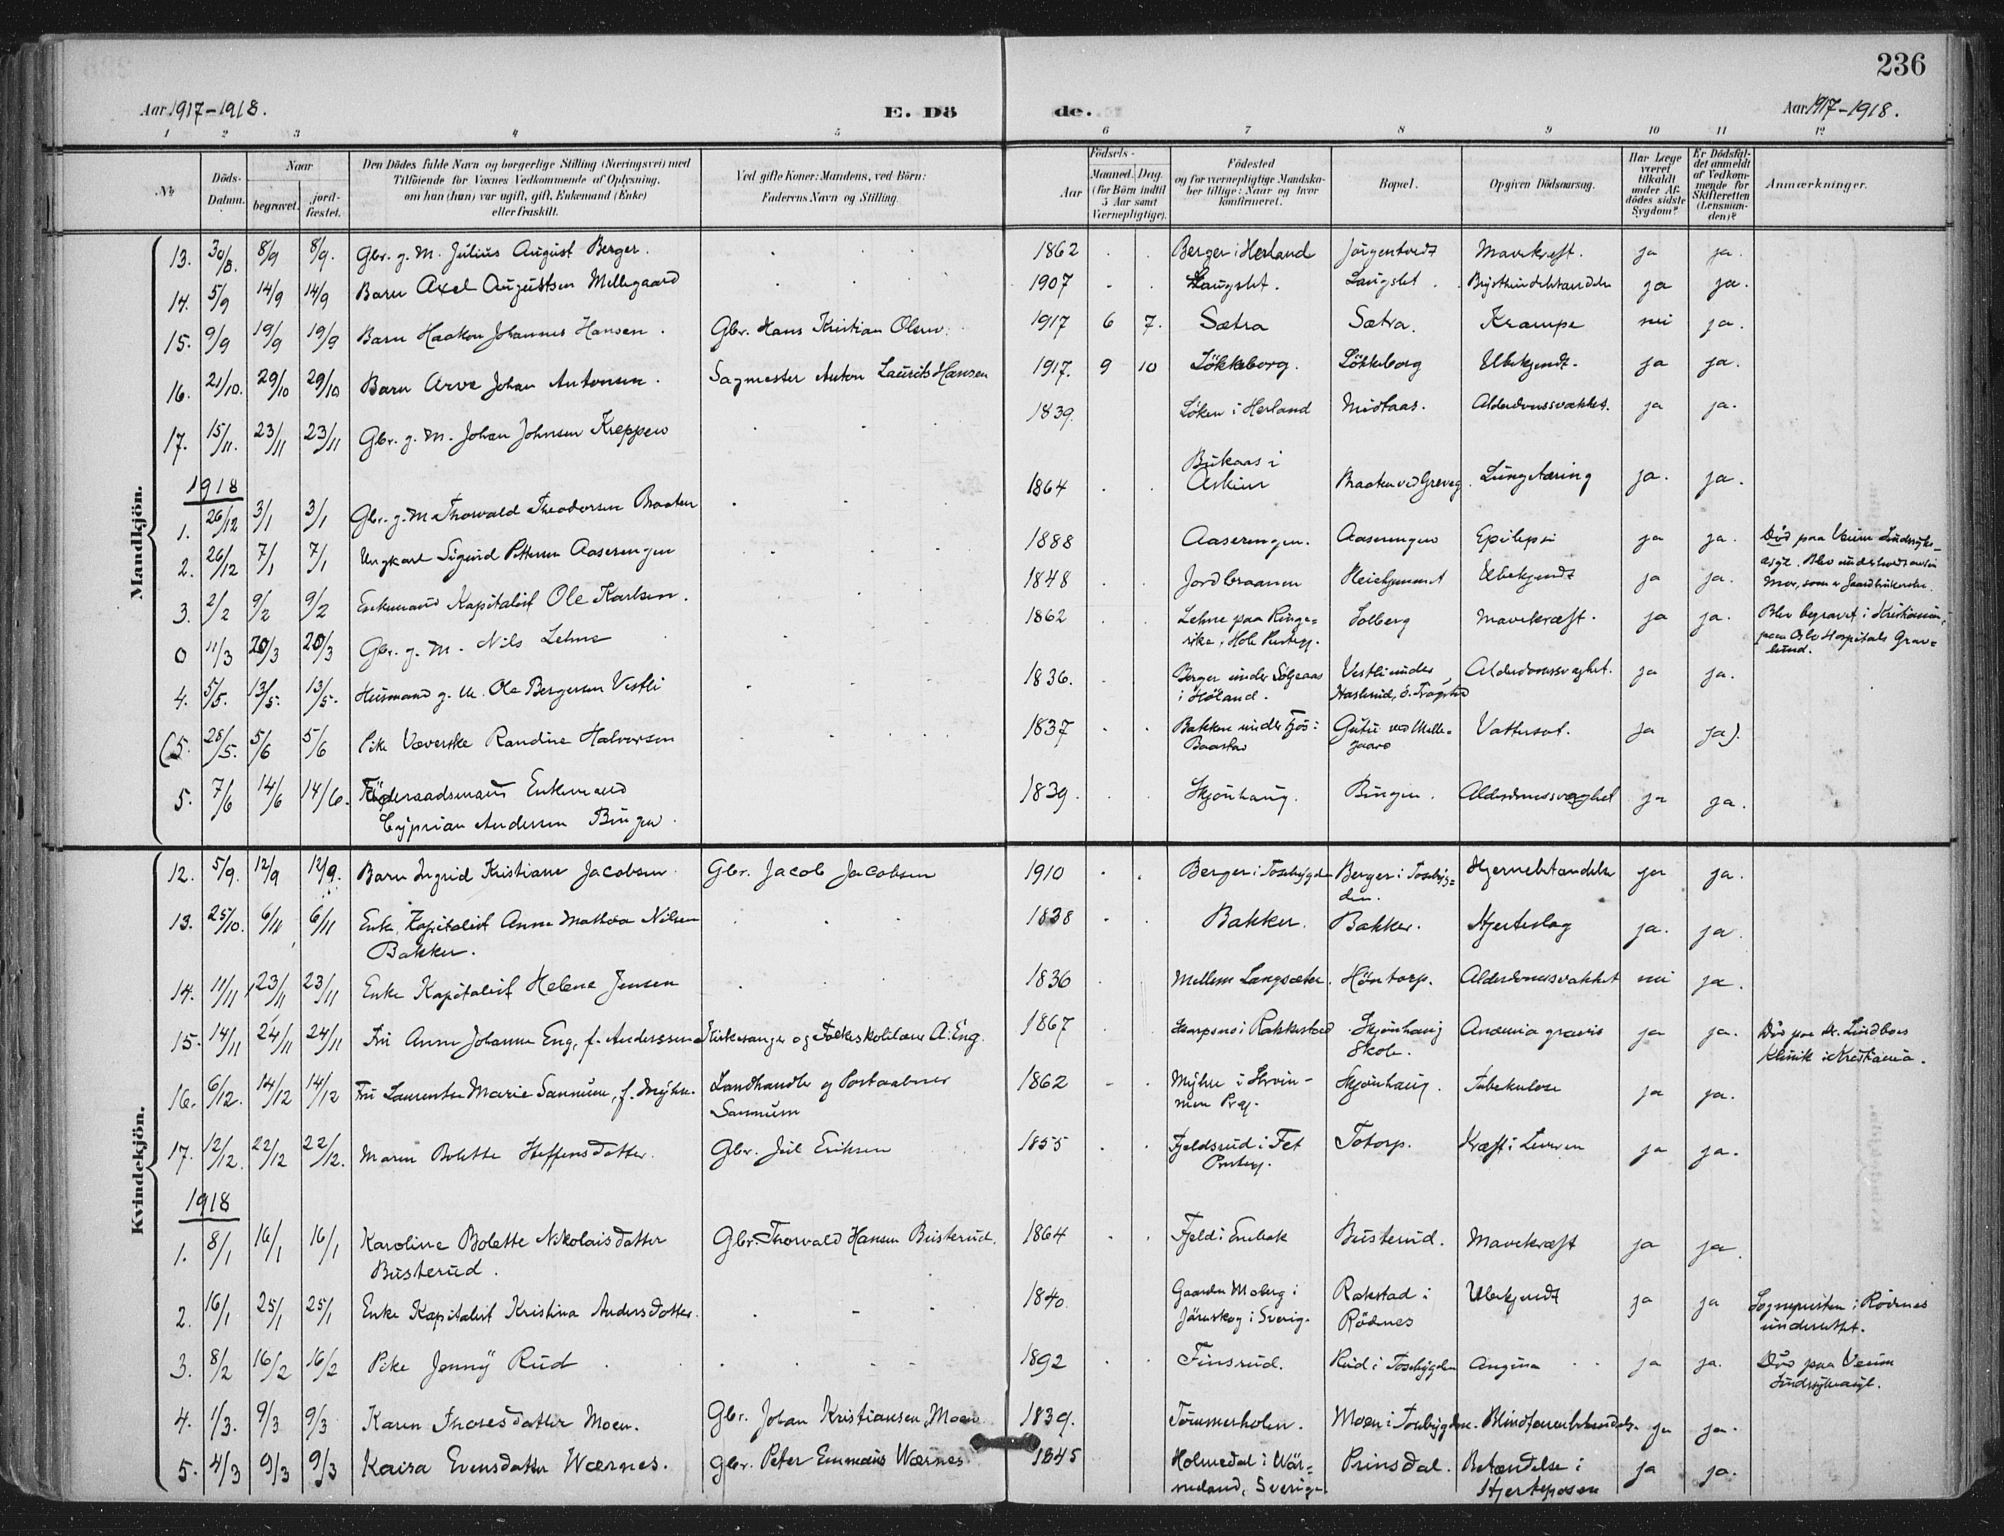 236
Aar 1917-1918.
E. Dö
de.
Aar 1917-1918.
1 2 3 4 5 6 7 8 9 10 11 12
No
Döds-
Datum.
Naar
begravet.
jord-
fæstet.
Den Dödes fulde Navn og borgerlige Stilling (Næringsvei) med
Tilföiende for Voxnes Vedkommende af Oplysning,
om han (hun) var ugift, gift, Enkemand (Enke)
eller fraskilt.
Ved gifte Koner: Mandens, ved Börn:
Faderens Navn og Stilling.
Födsels-
Aar
Maaned. Dag.
(for Börn indtil
5 Aar samt
Værnepligtige).
Födested
og for værnepligtige Mandska-
ber tillige: Naar og hvor
konfirmeret.
Bopæl.
Opgiven Dödsaarsag.
Har Læge
været
tilkaldt
under Af-
dödes sidste
Sygdom?
Er Dödsfal-
det anmeldt
af Vedkom-
mende for
Skifteretten
(Lensman-
den)?
Anmærkninger.
Mandkjön.
13. 30/8. 8/9 8/9. Gbr. g. M. Julius August Berger. 1862 Berger i Herland Jörgentvedt Mavekræft. ja ja.
14. 5/9 14/9 14/9 Barn Axel Augustsen Mellegaard 1907 Laugslet. Laugslet. ja ja.
15. 9/9 19/9 19/9 Barn Haakon Johannes Hansen. Gbr. Hans Kristian Olsen. 1917 6 7. Sætra Sætra. Krampe nei ja.
16. 21/10. 29/10 29/10 Barn Arve Johan Antonsen. Sagmester Anton Laurits Hansen 1917. 9 10 Lökkeborg. Lökkeborg Ubekjendt. ja ja.
17. 15/11. 23/11 23/11 Gbr. g. M. Johan Johnsen Kreppen 1839. Löken i Herland Midtaas. Alderdomssvækket. ja ja.
1918
1. 26/12 3/1 3/1 Gbr. g. M. Thorvald Theodorsen Braaten 1864 Bukaas i
Askim Lungetæring ja. ja.
2. 26/12 7/1 7/1 Ungkarl Sigurd Pettersen Aaserengen 1888 Aaserengen. Aaserengen Epilepsi ja ja. Död paa Veum Sindssyke-
asyl. Blev underholdt av sin
Mor, som er Gaardbrukerske.
3. 2/2 9/2 9/2 Enkemand Kapitalist Ole Karlsen. 1848 Jordbraanen Ubekjendt ja ja.
0 11/3 20/3 20/3 Gbr. g. M. Nils Lehne 1862 Lehne paa Ringe-
rike, Hole Prstgj. Solberg Mavekræft. ja ja. Blev begravet i Kristiania,
paa Oslo Hospitals Grav-
lund.
4. 5/5. 13/5. 13/5. Husmand g. M. Ole Bergersen Vestli 1836. Berger under
i Höland. Vestli under
Haslerud, ö. Trögstad Alderdomssvaghet. ja ja.
(5. 28/5. 5/6 5/6 Pike Væverske Randine Halvorsen 1837 Bakken under Fjös i
Baastad Gutu ved Melle-
gaard Vattersot. ja ja).
5. 7/6 14/6 14/6. Föderaadsmand Enkemand
Cyprian Andersen Bingen. 1839. Skjönhaug. Bingen. Alderdomssvaghet ja ja.
Kvindekjön.
12. 5/9. 12/9 12/9. Barn Ingrid Kristiane Jacobsen. Gbr. Jacob Jacobsen 1910 Berger i Tosebygden Berger i Tosebyg-
den. Hjernebetændelse ja ja.
13. 25/10. 6/11 6/11 Enke Kapitalist Anne Mathea Nilsen
Bakker. 1838 Bakker. Bakker. Hjerteslag ja. ja.
14. 11/11 23/11 23/11 Enke Kapitalist Helene Jensen 1836 Mellem Langsæter. Höntorp. Alderdomssvækket nei ja.
15. 14/11 24/11 24/11 Fru Anne Johanne Eng, f. Andersen Kirkesanger og Folkeskolelærer A. Eng. 1867 i Rakkestad Skjönhaug
Skole. Anæmia gravis ja ja. Död paa Dr. Lindboes
Klinik i Kristiania.
16. 6/12. 14/12 14/12 Fru Laurentse Marie Sannum, f. Myhre. Landhandler og Postaabner
Sannum 1862 Myhre i
Prgj. Skjönhaug. Tuberkulose ja ja.
17. 12/12. 22/12 22/12. Maren Bolette Steffensdatter. Gbr. Juel Eriksen 1855 Fjeldsrud i Fet
Prstgj. Totorp. Kræft i Leveren ja ja.
1918
1. 8/1 16/1 16/1 Karoline Bolette Nikolaisdatter
Busterud. Gbr. Thorvald Hansen Busterud. 1864 Fjeld i Enebak Busterud. Mavekræft ja ja.
2. 16/1 25/1 25/1 Enke Kapitalist Kristina Andersdatter. 1840. Gaarden Moberg i
Järnskog i Sverig. Rakstad i
Rödnes Ubekjendt ja ja Sognepresten i Rödnes
underrettet.
3. 8/2 16/2 16/2 Pike Jenny Rud 1892 Finsrud. Rud i Tosebygden Angina ja ja. Död paa Veum
Sindssykeasyl.
4. 1/3. 9/3 9/3 Karen Thoresdatter Moen. Gbr. Johan Kristiansen Moen 1839. Tömmerholen. Moen i Tosebygden. Blindtarmbetændelse. ja ja.
5. 4/3 9/3 9/3 Kaisa Evensdatter Wærnes. Gbr. Peter Emmaus Wærnes 1845 Holmedal i Vär-
meland, Sverige. Prinsdal. Betændelse i
Hjerteposen ja ja.